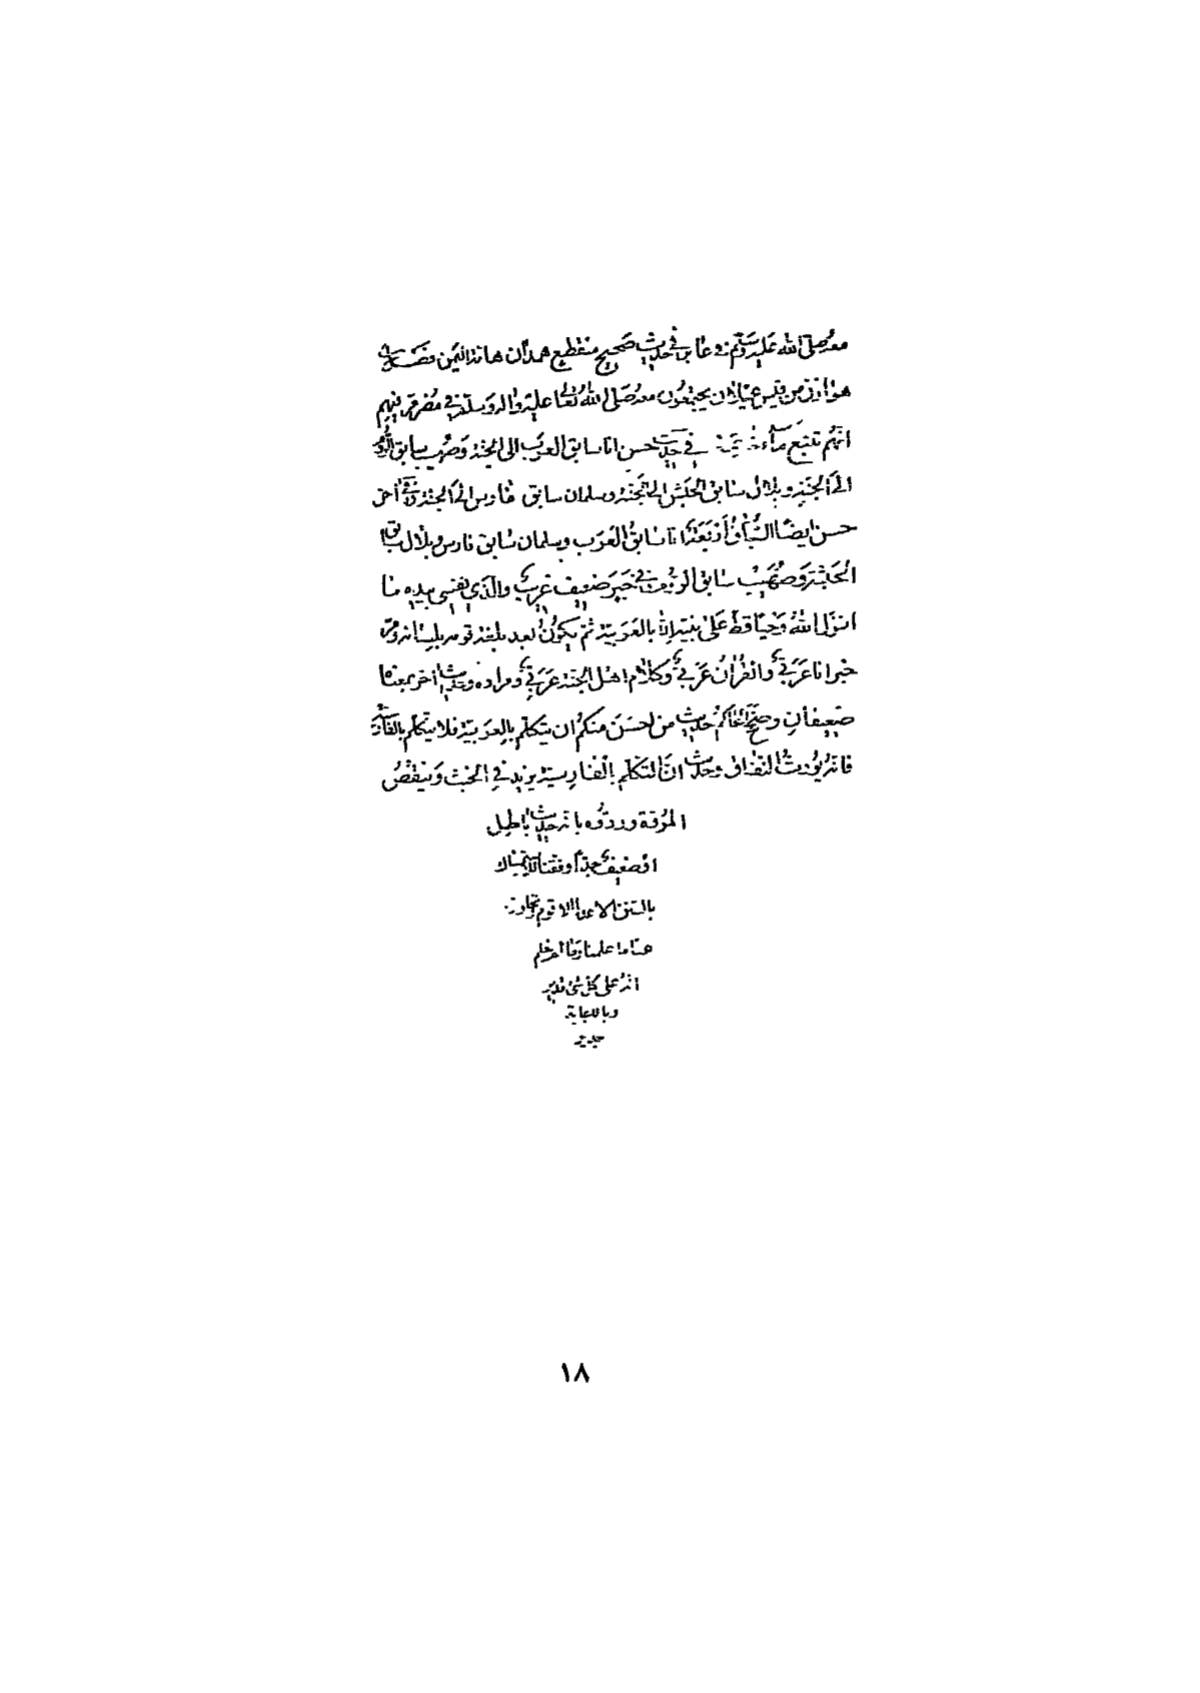 معه صلى الله عليه وسلم في حديث صحيح منقطع همدان هامة اليمن
هوازن من قيس عيلان يجتمعون معه صلى الله تعالى عليه وآله وسلم في مضر فهم
في حديث حسن انا سابق العرب الى الجنة وصهيب سابق الروم
الى الجنة وبلال سابق الحبش الى الجنة وسلمان سابق فارس الى الجنة وفي اخر
حسن ايضا السباق اربعة انا سابق العرب وسلمان سابق فارس وبلال سابق
الحبشة وصهيب سابق الروم وفي خبر ضعيف غريب والذي نفسي بيده ما
انزل الله وحيا قط على نبيه الا بالعربية ثم يكون بعد يبلغه قومه بلسانه
خبر انا عربي والقرآن عربي وكلام اهل الجنة عربي ومراده وحديث اخر بمعناه
ضعيفان وصحح الحاكم حديث من احسن منكم ان يتكلم بالعربية فلا يتكلم بالفارسية
فانه يورث النفاق وحديث ان التكلم بالفارسية يزيد في الخبث وينقص
المروة وردوه بانه حديث باطل
او ضعيف جدا
هذا ما علمنا
انه على كل شئ قدير
وبالاجابة
جدير
١٨